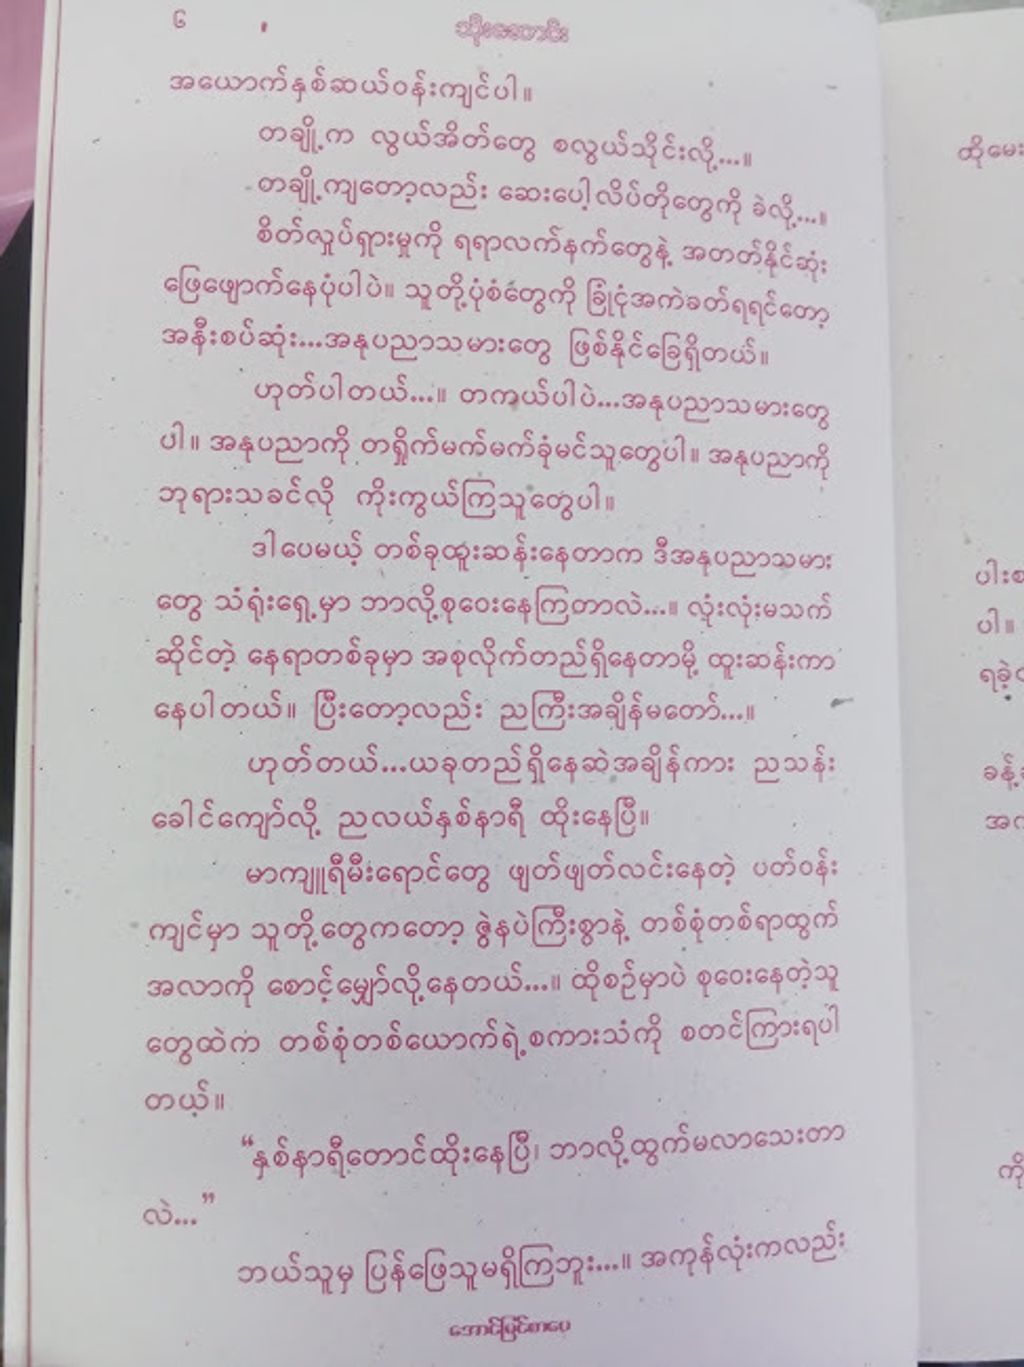 ၆
အယောက်နှစ်ဆယ်ဝန်းကျင်ပါ။
တချို့က လွယ်အိတ်တွေ စလွယ်သိုင်းလို့...။
တချို့ကျတော့လည်း ဆေးပေါ့လိပ်တိုတွေကို ခဲလို့...။
စိတ်လှုပ်ရှားမှုကို ရရာလက်နက်တွေနဲ့ အတတ်နိုင်ဆုံး
ဖြေဖျောက်နေပုံပါပဲ။ သူတို့ပုံစံတွေကို ခြုံငုံအကဲခတ်ရရင်တော့
အနီးစပ်ဆုံး...အနုပညာသမားတွေ ဖြစ်နိုင်ခြေရှိတယ်။
ဟုတ်ပါတယ်...။ တကယ်ပါပဲ...အနုပညာသမားတွေ
ပါ။ အနုပညာကို တရှိုက်မက်မက်ခုံမင်သူတွေပါ။ အနုပညာကို
ဘုရားသခင်လို ကိုးကွယ်ကြသူတွေပါ။
ဒါပေမယ့် တစ်ခုထူးဆန်းနေတာက ဒီအနုပညာသမား
တွေ သံရုံးရှေ့မှာ ဘာလို့စုဝေးနေကြတာလဲ...။ လုံးလုံးမသက်
ဆိုင်တဲ့ နေရာတစ်ခုမှာ အစုလိုက်တည်ရှိနေတာမို့ ထူးဆန်းကာ
နေပါတယ်။ ပြီးတော့လည်း ညကြီးအချိန်မတော်...။
ဟုတ်တယ်...ယခုတည်ရှိနေဆဲအချိန်ကား ညသန်း
ခေါင်ကျော်လို့ ညလယ်နှစ်နာရီ ထိုးနေပြီ။
မာကျူရီမီးရောင်တွေ ဖျတ်ဖျတ်လင်းနေတဲ့ ပတ်ဝန်း
ကျင်မှာ သူတို့တွေကတော့ ဇွဲနပဲကြီးစွာနဲ့ တစ်စုံတစ်ရာထွက်
အလာကို စောင့်မျှော်လို့နေတယ်...။ ထိုစဉ်မှာပဲ စုဝေးနေတဲ့သူ
တွေထဲက တစ်စုံတစ်ယောက်ရဲ့စကားသံကို စတင်ကြားရပါ
တယ့်။
“နှစ်နာရီတောင်ထိုးနေပြီ၊ ဘာလို့ထွက်မလာသေးတာ
လဲ...”
ဘယ်သူမှ ပြန်ဖြေသူမရှိကြဘူး...။ အကုန်လုံးကလည်း
အောင်မြင်စာပေ
ထိုမေး
ပါး
ပါ။
ရခဲ့
ခန့်
ကို